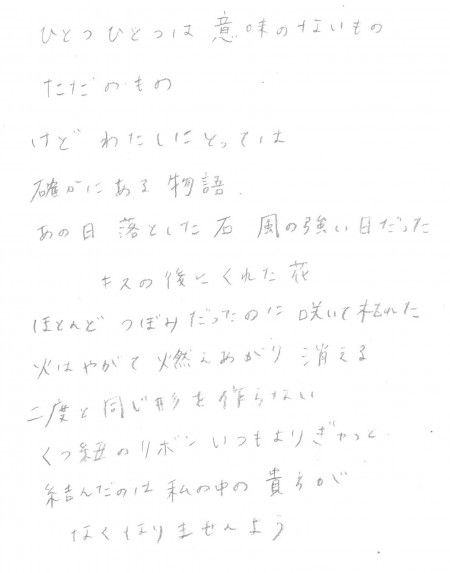 ひとつひとつは 意味のないもの
ただのもの
けど わたしにとっては
確かにある 物語.
あの日 落とした 石 風の強い日だった
キスの後にくれた花
ほとんど つぼみだったのに 咲いて枯れた
火はやがて 燃えあがり 消える
二度と同じ形を作らない
くつ紐のリボン いつもよりぎゅっと
結んだのは 私の中の 貴方が
なくなりませんよう